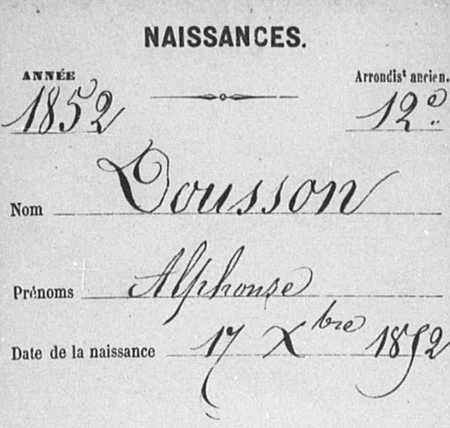 NAISSANCES.
ANNÉE Arrondist ancien.
1852 12e
Nom Dousson
Prénoms Alphonse
Date de la naissance 17 Xbre 1852